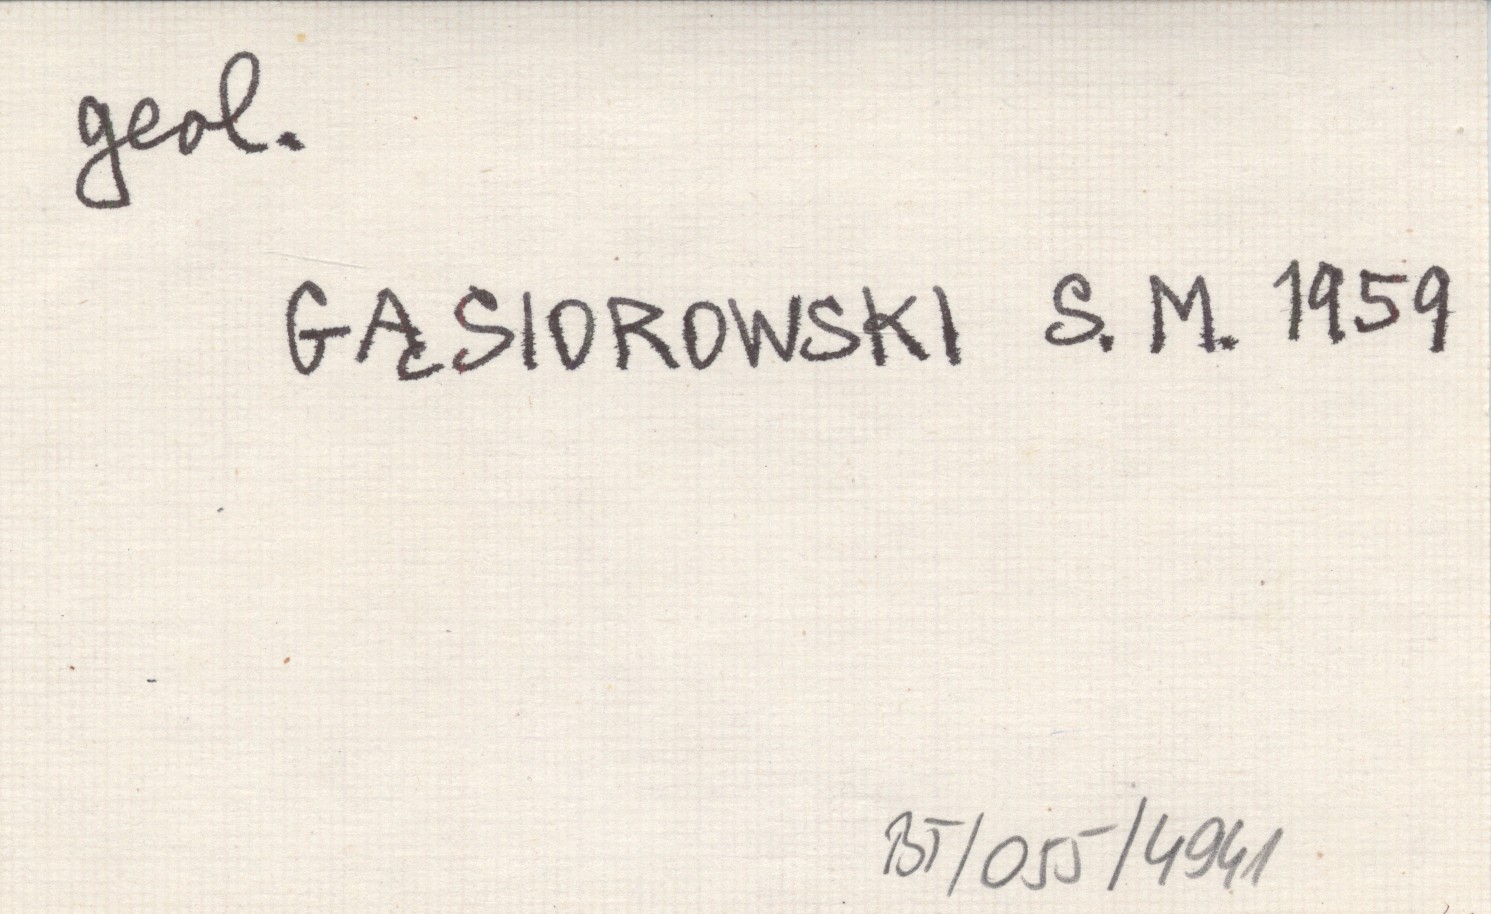 geol.
GĄSIOROWSKI S. M. 1959
BT/055/4941